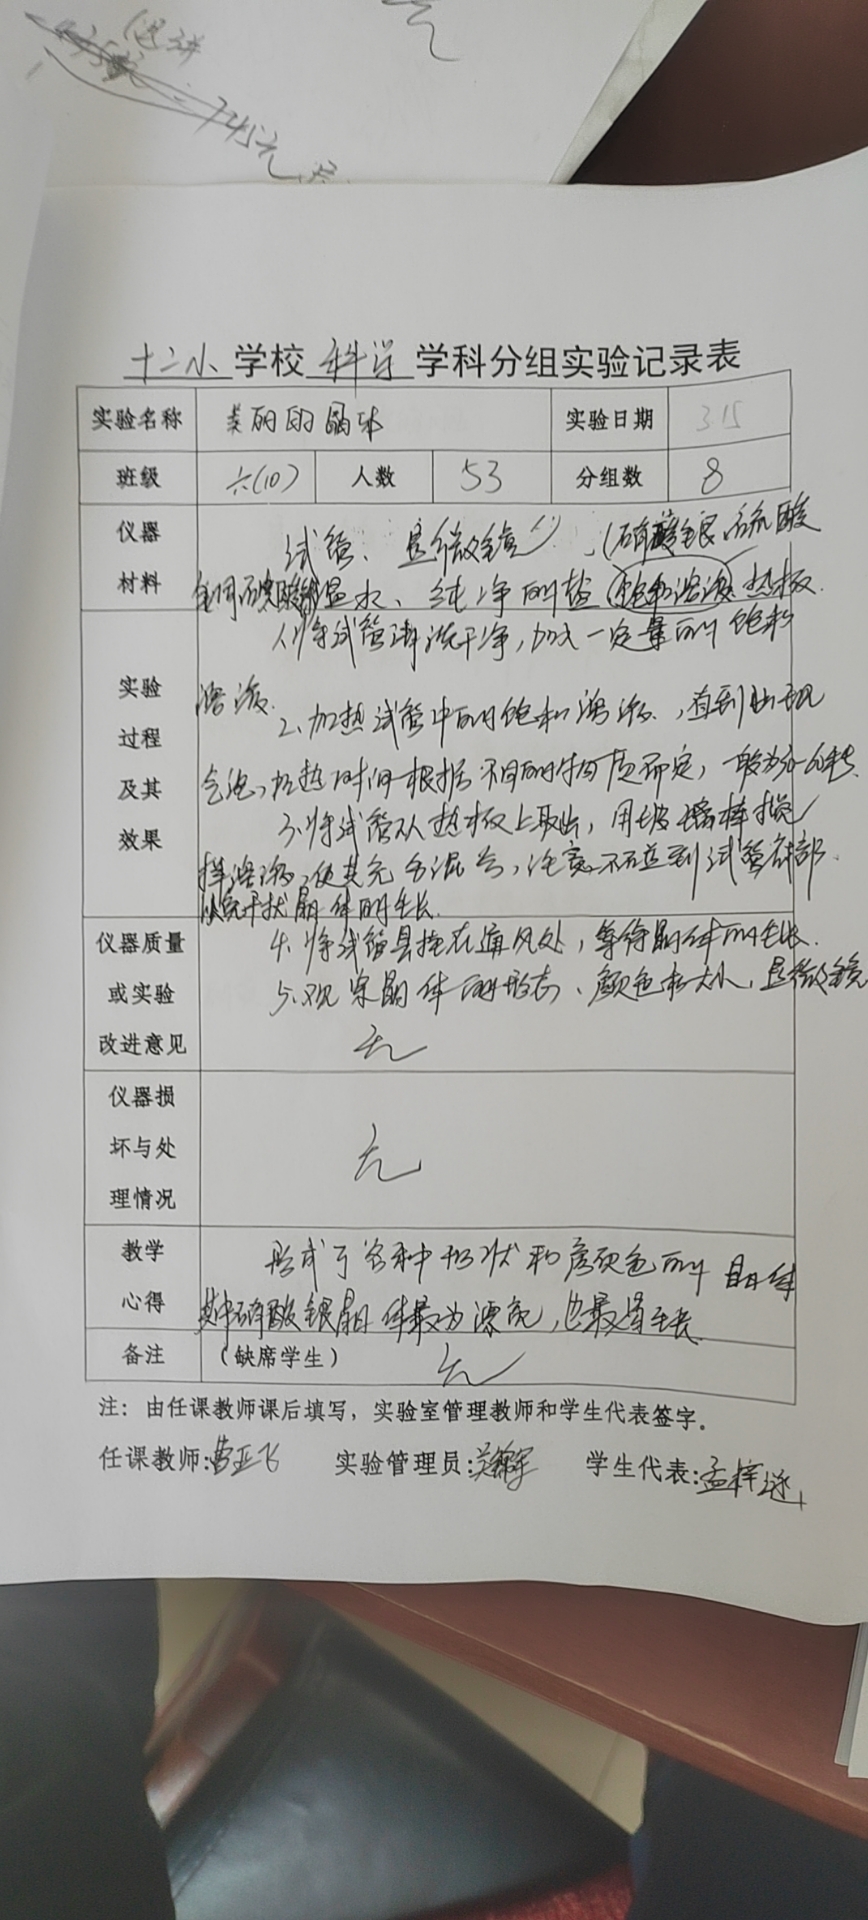 745元
十二小 学校 科学 学科分组实验记录表
实验名称 美丽的晶体 实验日期 3.15
班级 六(10) 人数 53 分组数 8
仪器材料
试管、显微镜、(硝酸银、硫酸
温水、纯净的盐(饱和溶液)热板.
实验过程及其效果
1.将试管清洗干净,加入一定量的饱和
溶液.
2.加热试管中的饱和溶液,直到出现
气泡,加热时间根据不同的物质而定,一般为30-60秒.
3.将试管从热板上取出,用玻璃棒搅
拌溶液,使其充分混合,注意不要碰到试管底部
以免干扰晶体的生长.
仪器质量或实验改进意见
4.将试管悬挂在通风处,等待晶体的生长.
5.观察晶体的形态、颜色和大小,显微镜
无
仪器损坏与处理情况
无
教学心得
形成了各种形状和颜色的晶体
其中硝酸银晶体最为漂亮,也最易生长
备注 (缺席学生) 无
注:由任课教师课后填写,实验室管理教师和学生代表签字。
任课教师:曹亚飞 实验管理员: 学生代表:孟梓